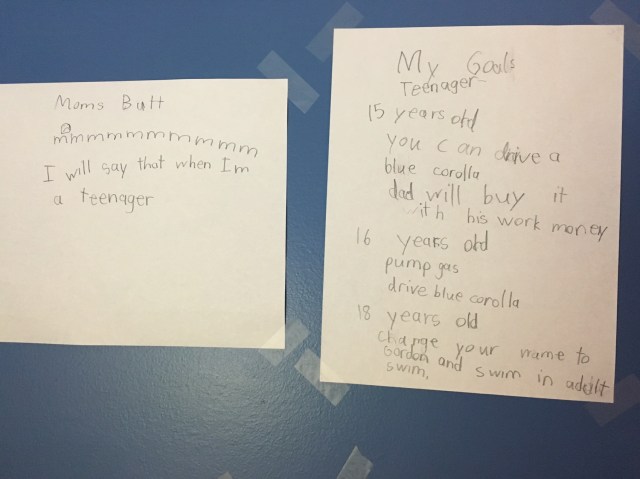 Moms Butt
mmmmmmmmmmm
I will say that when Im
a teenager
My Goals
Teenager-
15 years old
you can drive a
blue corolla
dad will buy it
with his work money
16 years old
pump gas
drive blue corolla
18 years old
change your name to
Gordon and swim in adult
swim.